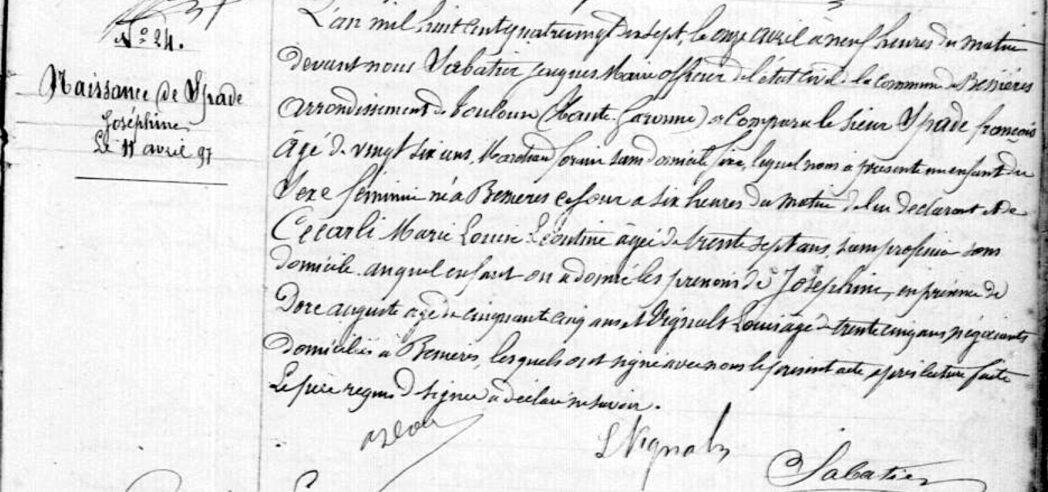 N° 24.
Naissance de Spade
Joséphine
Le 11 avril 97
L'an mil huit cent quatre vingt dix sept, le onze avril à neuf heures du matin
devant nous Sabatier Jacques Maire officier de l'état civil de la commune de Bessières
arrondissement de Toulouse (Haute Garonne) a comparu le sieur Spade françois
âgé de vingt six ans, Marchand forain sans domicile fixe, lequel nous a présenté un enfant du
Sexe féminin né à Bessières ce jour à six heures du matin de lui déclarant et de
Cecarli Marie Louise Léontine âgée de trente sept ans, sans profession sans
domicile auquel enfant on a donné les prénoms de Joséphine, en présence de
Dore auguste âgé de cinquante cinq ans et Vignals Louis âgé de trente cinq ans négociants
domiciliés à Bessières, lesquels ont signé avec nous le présent acte après lecture faite
Le père requis de signer a déclaré ne savoir.
L Vignals
Sabatier